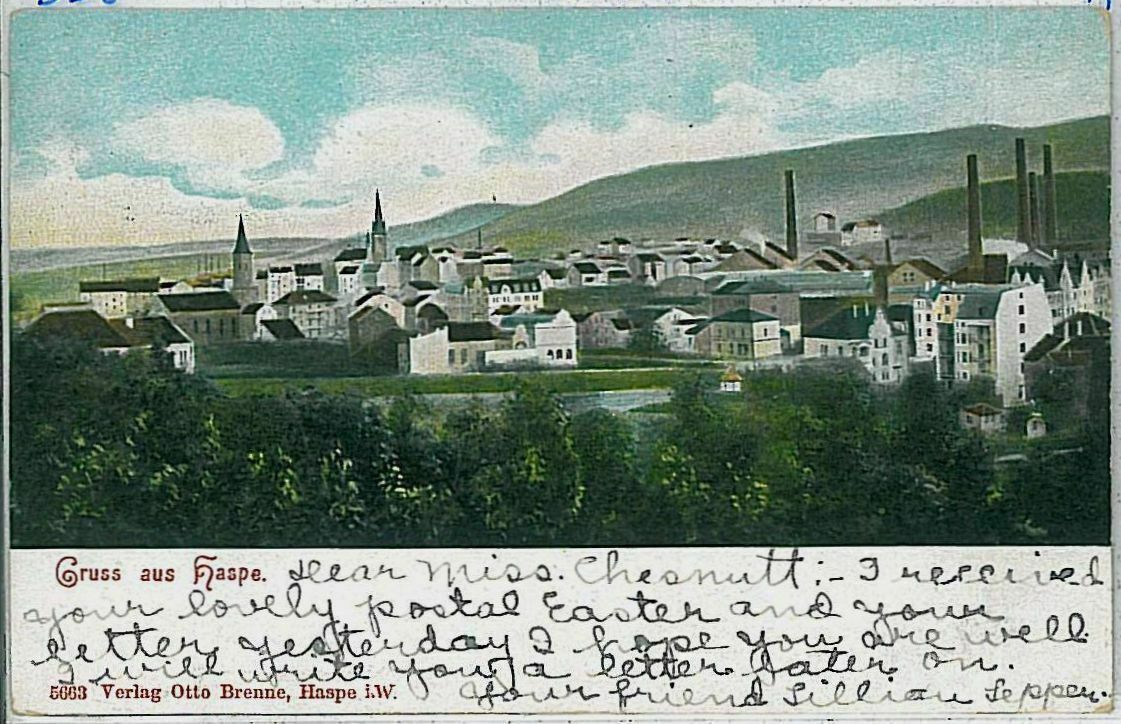 Gruss aus Haspe. Dear Miss. Chesnutt:- I received
your lovely postal Easter and your
letter yesterday I hope you are well
I will write you a letter later on.
5663 Verlag Otto Brenne, Haspe i.W. your friend Lillian